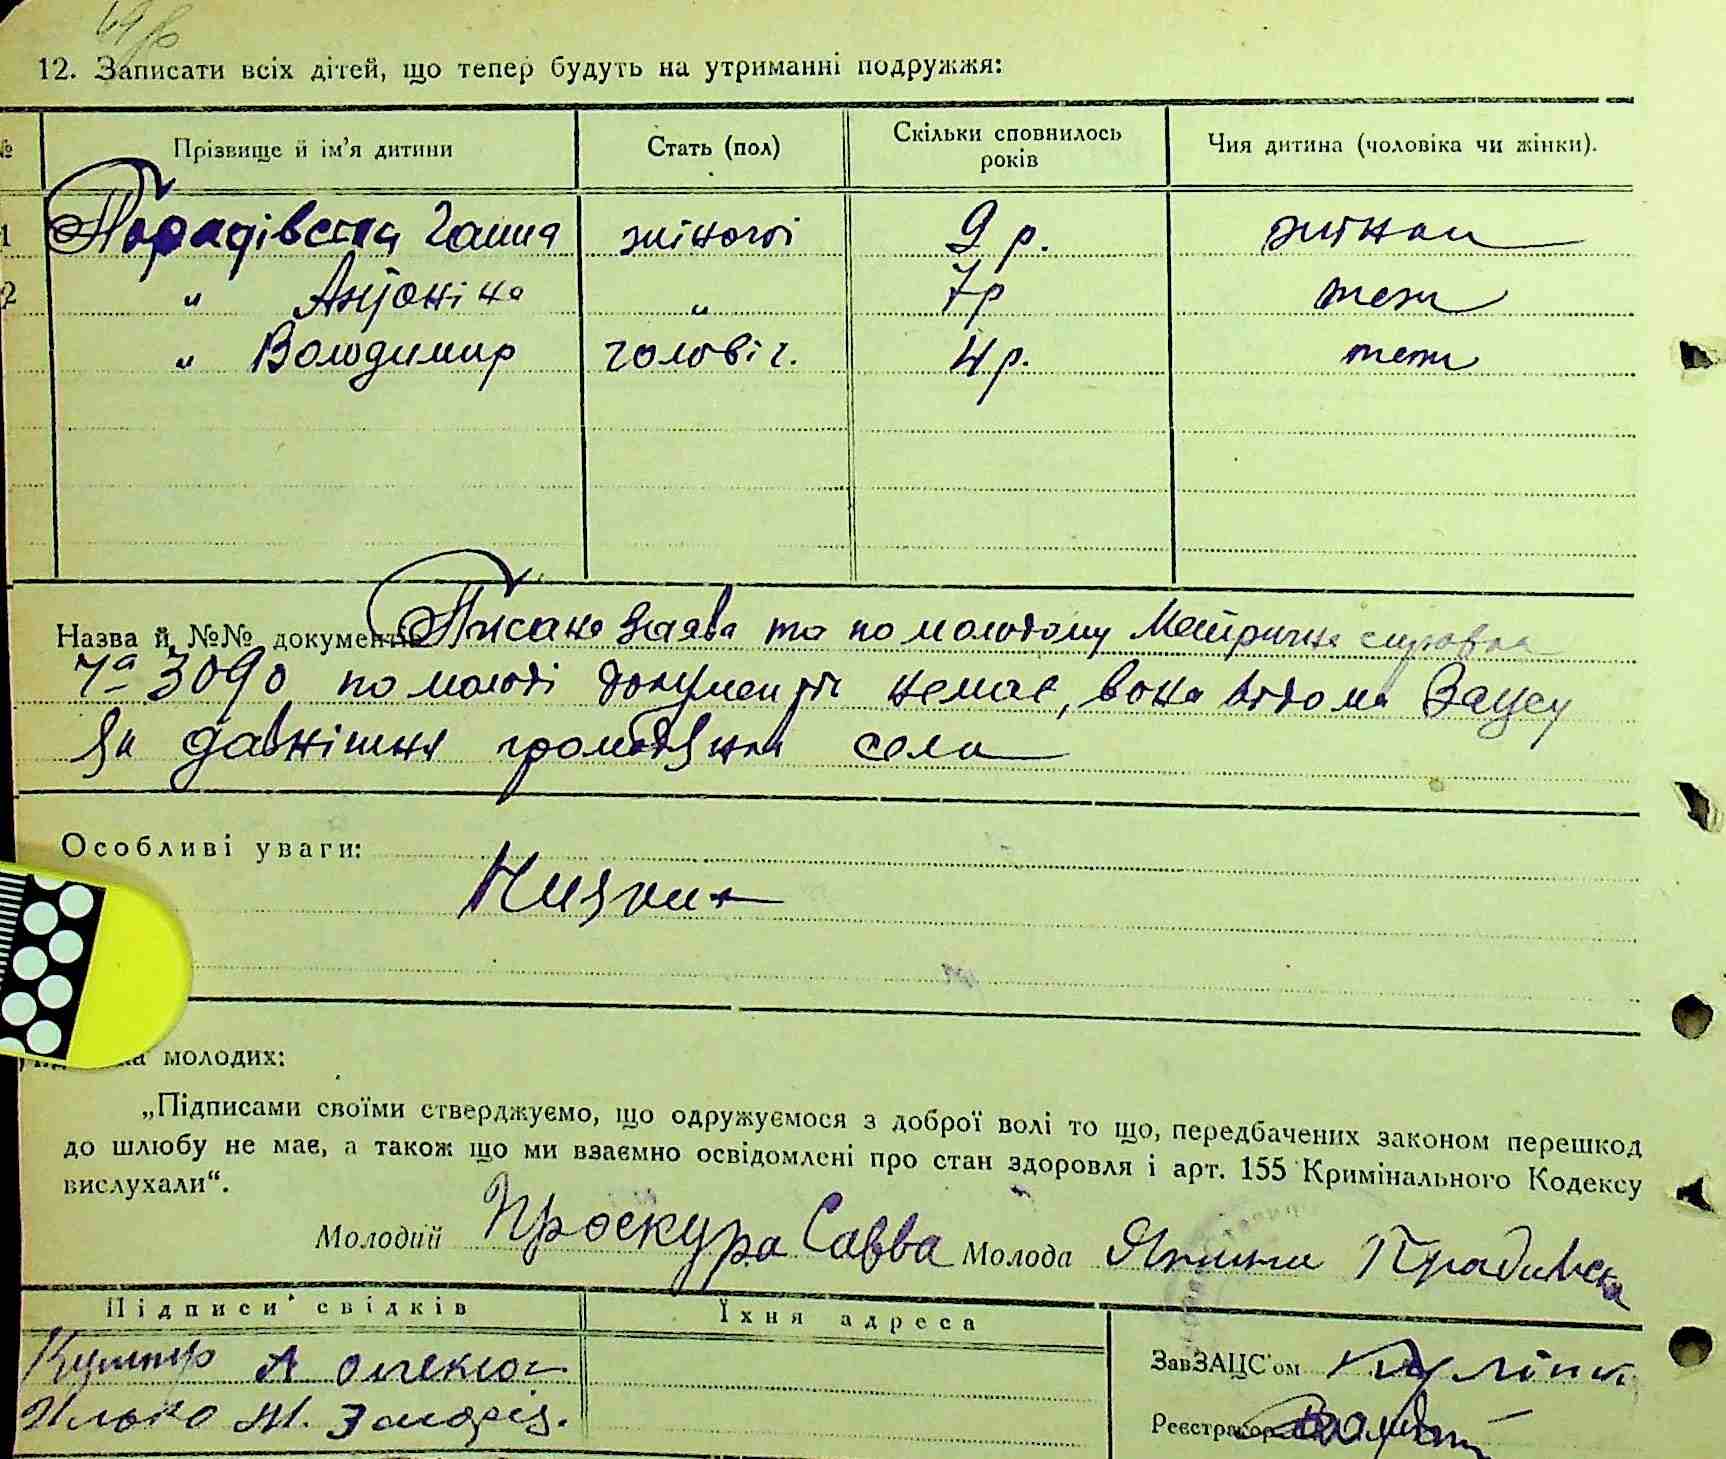 12. Записати всіх дітей, що тепер будуть на утриманні подружжя:
№ Прізвище й ім'я дитини Стать (пол) Скільки сповнилось років Чия дитина (чоловіка чи жінки).
1 Ганна жіночої 9 р. жінки
2 " Антоніна " 7р теж
" Володимир чоловіч. 4р. теж
Назва й №№ документів Писана заява та по молодому Метрична справка
3090 по молоді документів немає, вона відома Загсу
як давнішня громадянка села
Особливі уваги:
молодих:
„Підписами своїми стверджуємо, що одружуємося з доброї волі то що, передбачених законом перешкод
до шлюбу не має, а також що ми взаємно освідомлені про стан здоровля і арт. 155 Кримінального Кодексу
вислухали“.
Молодий Проскура Савва Молода
Підписи свідків Їхня адреса
ЗавЗАЦС'ом
Реєстратор